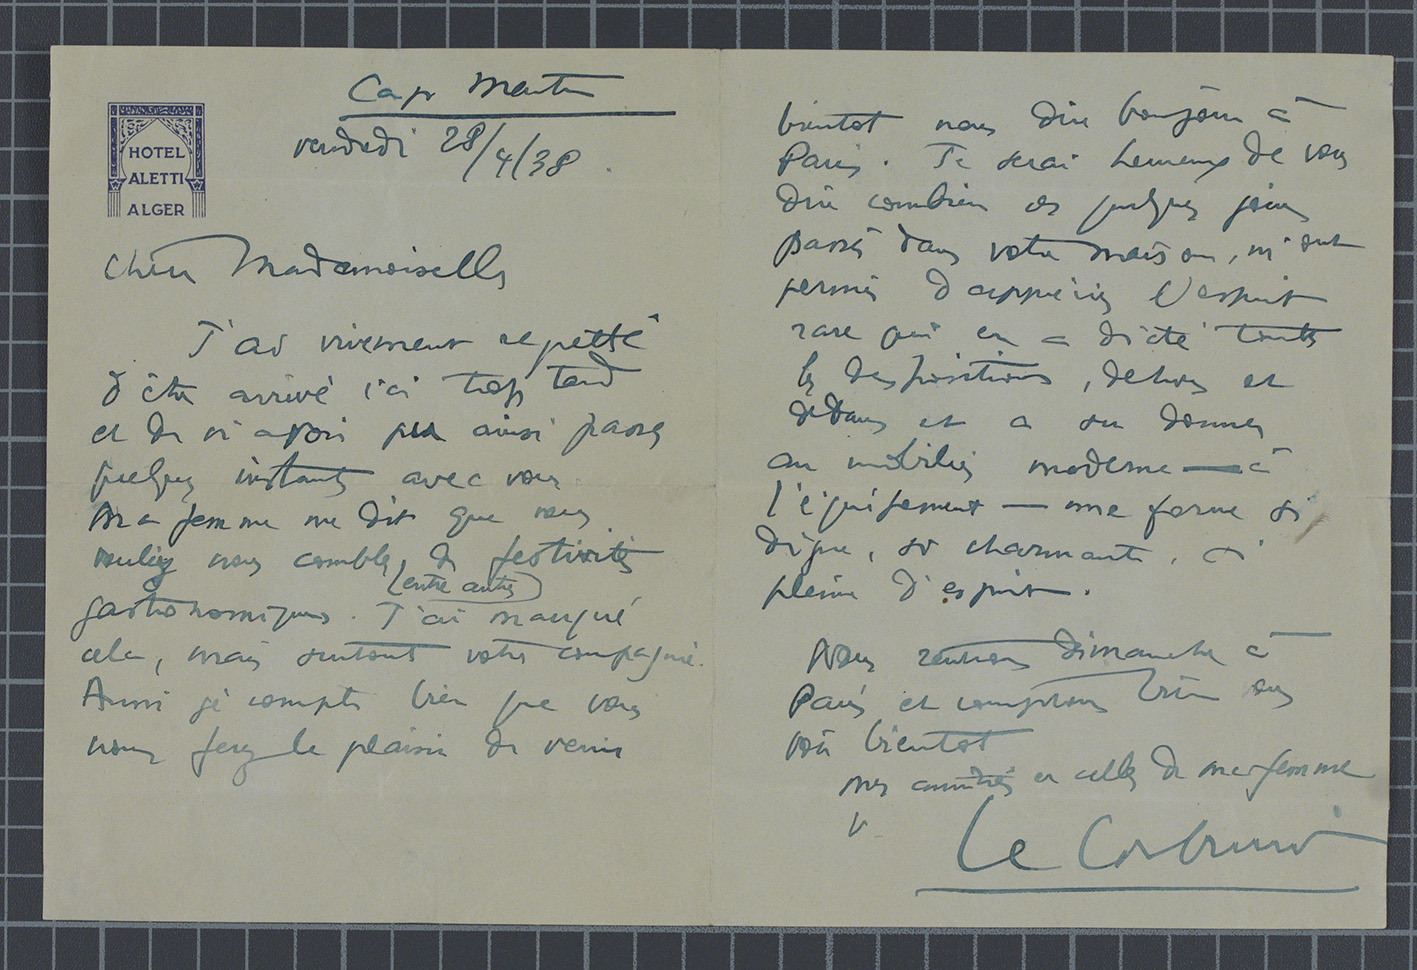 HOTEL
ALETTI
ALGER
Cap Martin
vendredi 28/4/38.
Chère Mademoiselle
J'ai vivement regretté
d'être arrivé ici trop tard
et de n'avoir pu ainsi passer
quelques instants avec vous.
Ma femme me dit que vous
vouliez nous combler de festivités
(entre autres)
gastronomiques. J'ai manqué
cela, mais surtout votre compagnie.
Aussi je compte bien que vous
nous ferez le plaisir de venir
bientot nous dire bonjour à
Paris. Je serai heureux de vous
dire combien ces quelques jours
passés dans votre maison, m'ont
permis d'apprécier l'esprit
rare qui en a dicté toutes
les dispositions, dehors et
dedans et a su donner
au mobilier moderne — à
l'équipement — une forme si
digne, si charmante, si
pleine d'esprit.
Nous rentrons dimanche à
Paris et comptons bien vous
voir bientot
mes amitiés et celles de ma femme
Le Corbusier